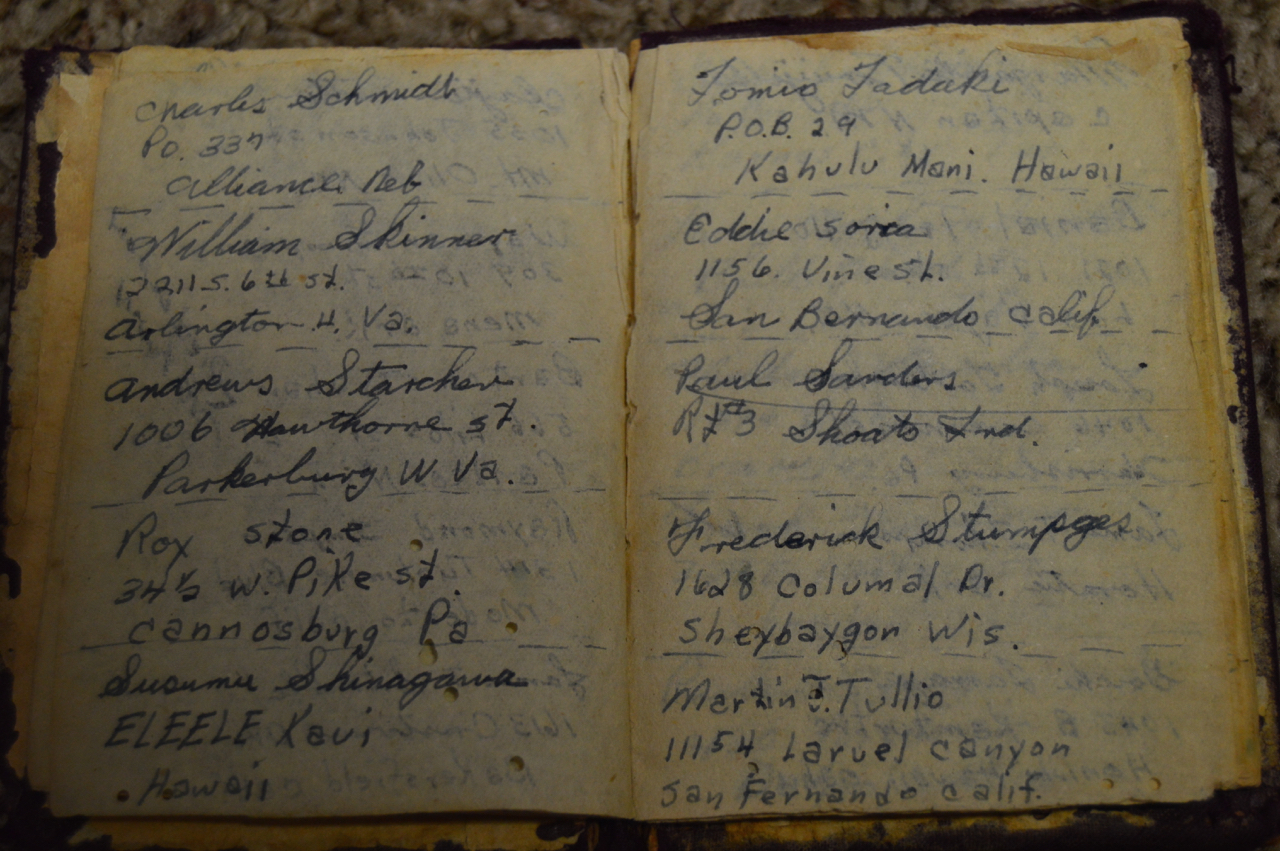 Charles Schmidt
P.O. 337
Alliance Neb
William Skinner
2211 S. 6th st.
Arlington H. Va.
Andrews Starcher
1006 Hawthorne st.
Parkerburg W Va.
Roy stone
34½ W. Pike st.
Cannosburg Pa
Susumu Shinagawa
ELEELE Kaui
Hawaii
Tomio Tadaki
P.O.B. 29
Kahulu Maui. Hawaii
Eddie Soria
1156. Vine st.
San Bernando Calif
Paul Sanders
Rt #3 Shoals Ind.
Frederick Stumpges
1628 Columal Dr.
Sheybaygon Wis.
Martin J. Tullio
11154 Laruel canyon
San Fernando calif.